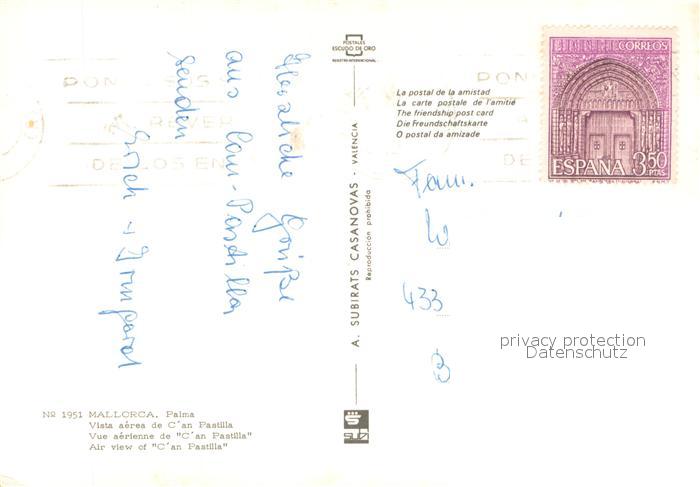 Herzliche Grüße
aus Can-Pastilla
senden
Erich u. Irmgard
POSTALES
ESCUDO DE ORO
REGISTRO INTERNACIONAL
La postal de la amistad
La carte postale de l'amitié
The friendship post card
Die Freundschaftskarte
O postal da amizade
CORREOS
ESPAÑA 3,50
PTAS
Fam.
W
433
B
privacy protection
Datenschutz
A. SUBIRATS CASANOVAS - VALENCIA
Reproduccion prohibida
Nº 1951 MALLORCA. Palma
Vista aérea de C'an Pastilla
Vue aérienne de "C'an Pastilla"
Air view of "C'an Pastilla"